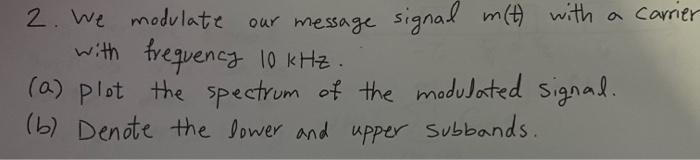 2. We modulate our message signal m(t) with a carrier
with frequency 10 kHz.
(a) plot the spectrum of the modulated signal.
(b) Denote the lower and upper subbands.